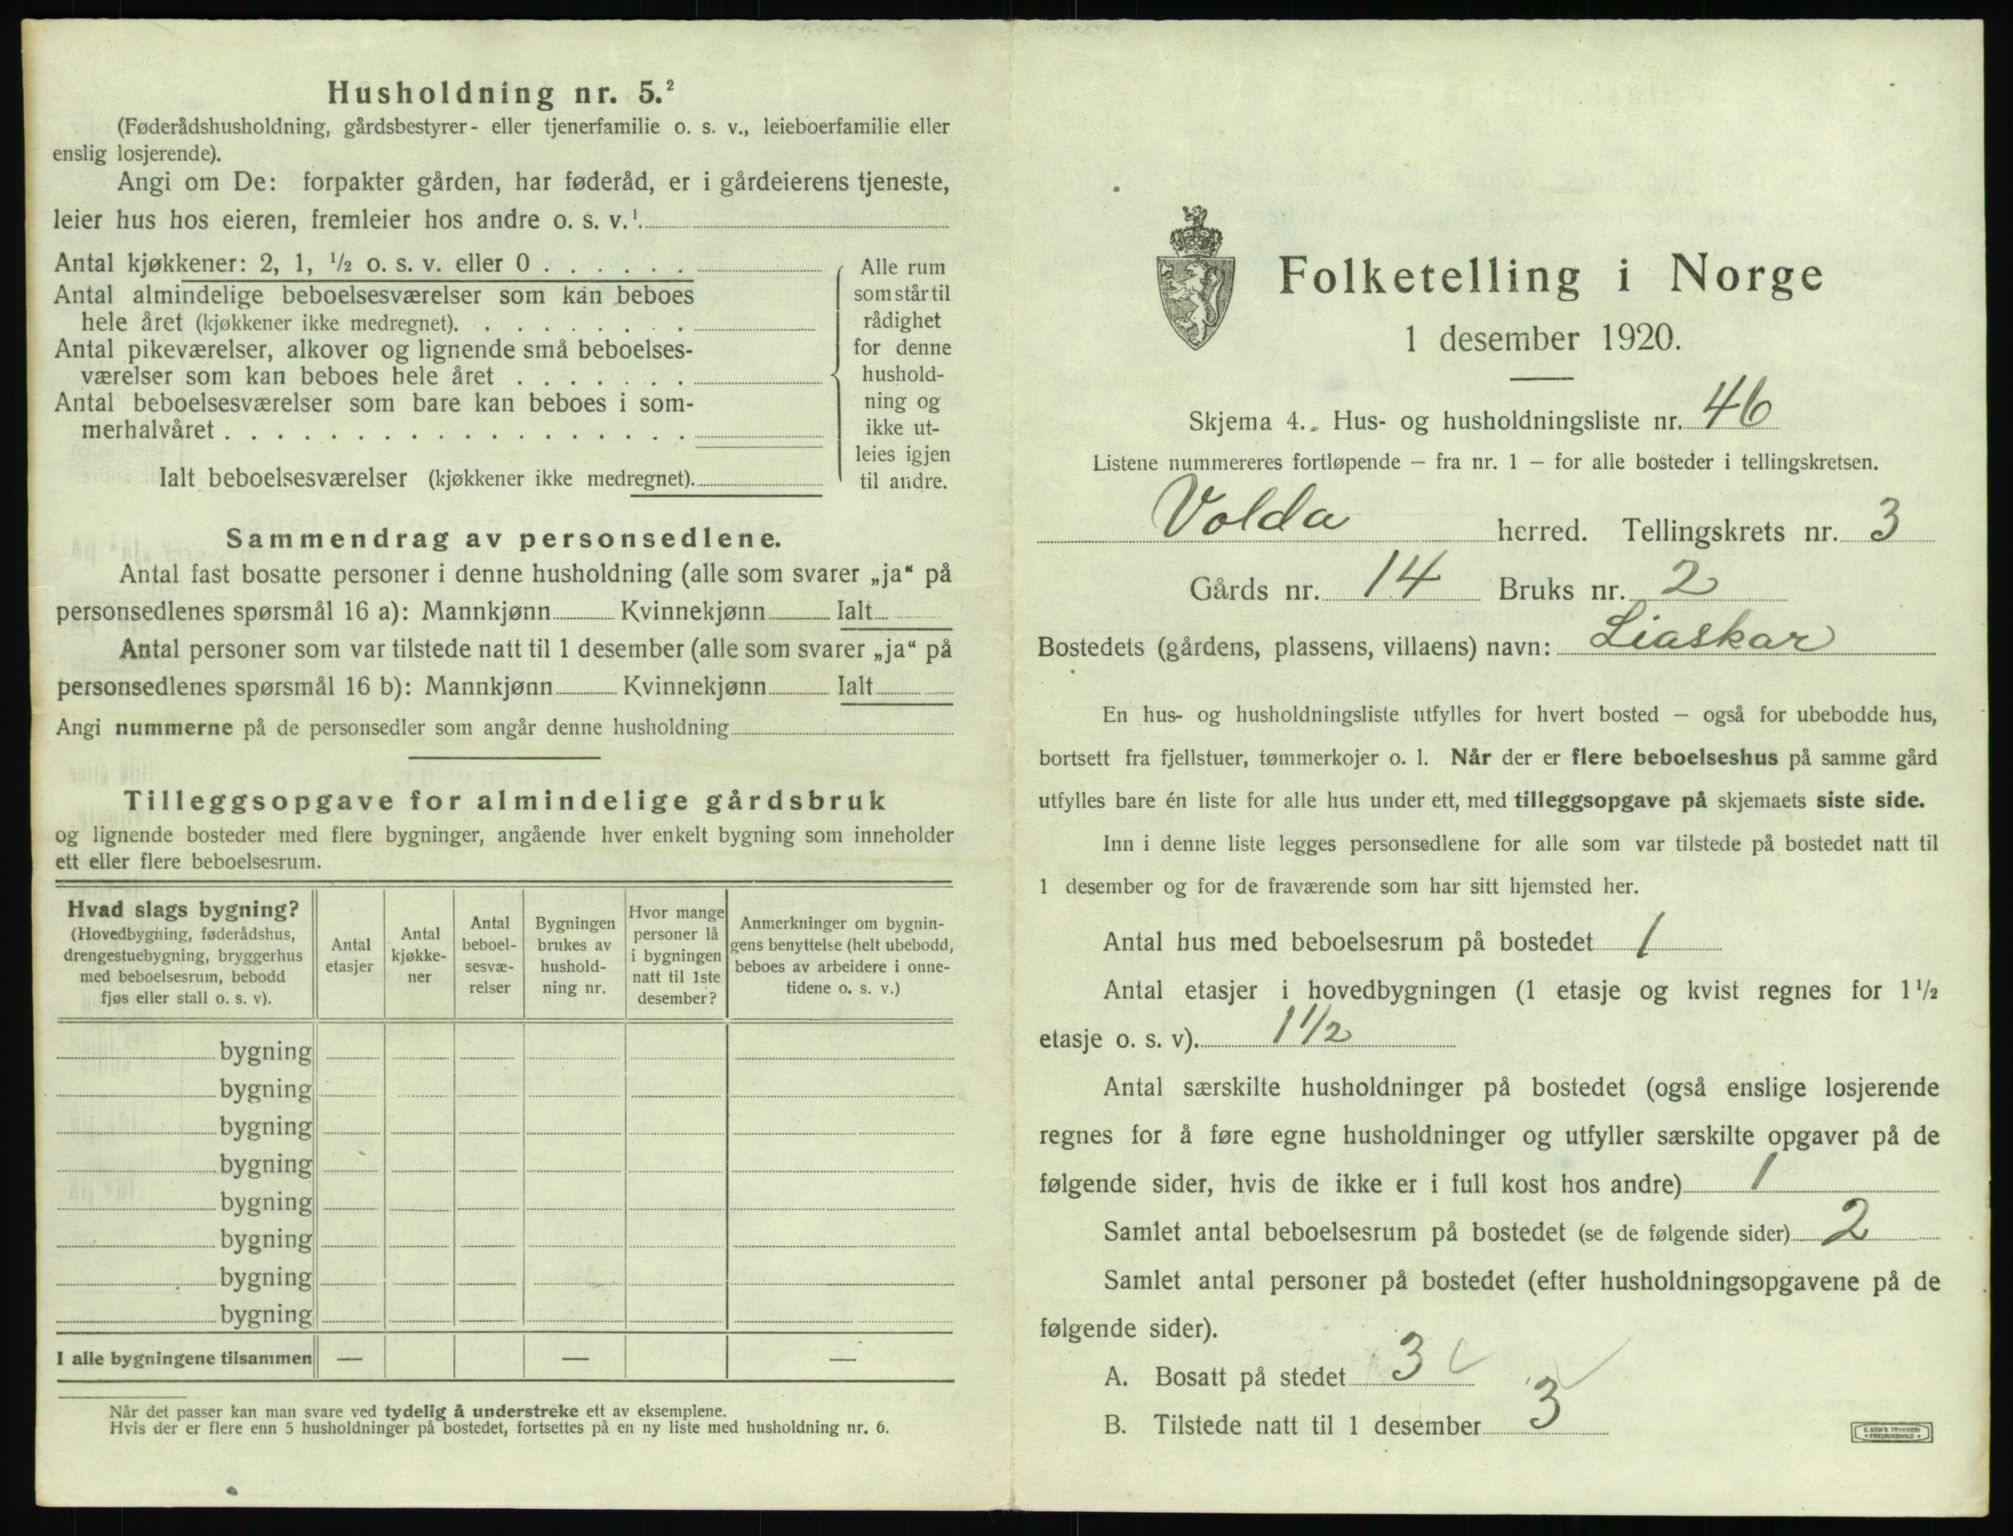 Husholdning nr. 5.²
(Føderådshusholdning, gårdsbestyrer- eller tjenerfamilie o. s. v., leieboerfamilie eller
enslig losjerende).
Angi om De: forpakter gården, har føderåd, er i gårdeierens tjeneste,
leier hus hos eieren, fremleier hos andre o. s. v.¹
Antal kjøkkener: 2, 1, ½ o. s. v. eller 0 . . . . . .
Antal almindelige beboelsesværelser som kan beboes
hele året (kjøkkener ikke medregnet). . . . . . . . .
Antal pikeværelser, alkover og lignende små beboelses-
værelser som kan beboes hele året . . . . . . .
Antal beboelsesværelser som bare kan beboes i som-
merhalvåret . . . . . . . . . . . . . . . . . .
Ialt beboelsesværelser (kjøkkener ikke medregnet).
Alle rum
som står til
rådighet
for denne
hushold-
ning og
ikke ut-
leies igjen
til andre.
Sammendrag av personsedlene.
Antal fast bosatte personer i denne husholdning (alle som svarer „ja“ på
personsedlenes spørsmål 16 a): Mannkjønn Kvinnekjønn Ialt
Antal personer som var tilstede natt til 1 desember (alle som svarer „ja“ på
personsedlenes spørsmål 16 b): Mannkjønn Kvinnekjønn Ialt
Angi nummerne på de personsedler som angår denne husholdning
Tilleggsopgave for almindelige gårdsbruk
og lignende bosteder med flere bygninger, angående hver enkelt bygning som inneholder
ett eller flere beboelsesrum.
Hvad slags bygning?
(Hovedbygning, føderådshus,
drengestuebygning, bryggerhus
med beboelsesrum, bebodd
fjøs eller stall o. s. v).
Antal
etasjer
Antal
kjøkke-
ner
Antal
beboel-
sesvæ-
relser
Bygningen
brukes av
hushold-
ning nr.
Hvor mange
personer lå
i bygningen
natt til 1ste
desember?
Anmerkninger om bygnin-
gens benyttelse (helt ubebodd,
beboes av arbeidere i onne-
tidene o. s. v.)
bygning
bygning
bygning
bygning
bygning
bygning
bygning
bygning
I alle bygningene tilsammen — — —
Når det passer kan man svare ved tydelig å understreke ett av eksemplene.
Hvis der er flere enn 5 husholdninger på bostedet, fortsettes på en ny liste med husholdning nr. 6.
Folketelling i Norge
1 desember 1920.
Skjema 4. Hus- og husholdningsliste nr. 46
Listene nummereres fortløpende — fra nr. 1 — for alle bosteder i tellingskretsen.
Volda herred. Tellingskrets nr. 3
Gårds nr. 14 Bruks nr. 2
Bostedets (gårdens, plassens, villaens) navn: Liaskar
En hus- og husholdningsliste utfylles for hvert bosted — også for ubebodde hus,
bortsett fra fjellstuer, tømmerkojer o. l. Når der er flere beboelseshus på samme gård
utfylles bare én liste for alle hus under ett, med tilleggsopgave på skjemaets siste side.
Inn i denne liste legges personsedlene for alle som var tilstede på bostedet natt til
1 desember og for de fraværende som har sitt hjemsted her.
Antal hus med beboelsesrum på bostedet 1
Antal etasjer i hovedbygningen (1 etasje og kvist regnes for 1½
etasje o. s. v). 1½
Antal særskilte husholdninger på bostedet (også enslige losjerende
regnes for å føre egne husholdninger og utfyller særskilte opgaver på de
følgende sider, hvis de ikke er i full kost hos andre) 1
Samlet antal beboelsesrum på bostedet (se de følgende sider) 2
Samlet antal personer på bostedet (efter husholdningsopgavene på de
følgende sider).
A. Bosatt på stedet 3
B. Tilstede natt til 1 desember 3
E. SEM'S TRYKKERI
FREDRIKSHALD